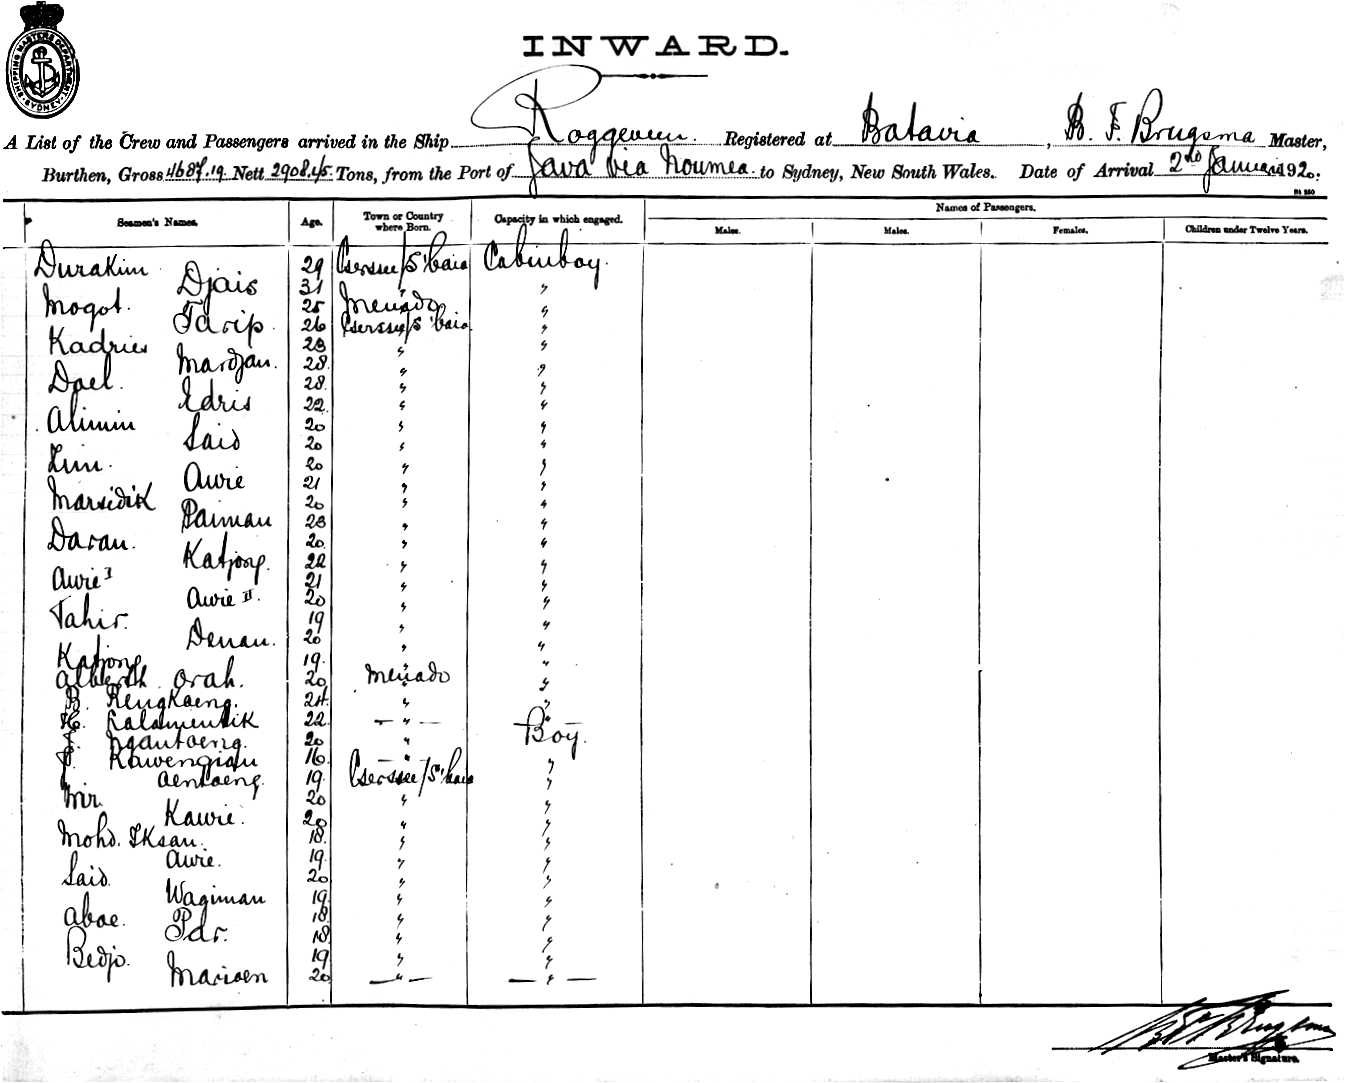 SHIPPING MASTERS DEPARTMENT SYDNEY
INWARD.
A List of the Crew and Passengers arrived in the Ship Roggeveen. Registered at Batavia, B. F. Brugsma Master,
Burthen, Gross 4687.19 Nett 2908.45 Tons, from the Port of Java via Noumea to Sydney, New South Wales. Date of Arrival 2nd January 1920.
Seamen's Names. Age. Town or Country where Born. Capacity in which engaged. Names of Passengers.
Males. Males. Females. Children under Twelve Years.
Durakim 29 Gerssee/S'baia Cabinboy.
Djais 31 " "
Mogot. 25 Menado "
Tarip. 26 Gerssee/S'baia "
Kadries 23 " "
Mardjan. 28 " "
Dael. 28 " "
Edris 22 " "
Alimin 20 " "
Said 20 " "
Lim. 20 " "
Awie 21 " "
Marsidik 20 " "
Paiman 23 " "
Daran. 20 " "
Katjong. 22 " "
Awie I 21 " "
Awie II. 20 " "
Tahir. 19 " "
Denan. 20 " "
Katjong 19. " "
Alberth Orah. 20 Menado "
B. Rengkoeng. 24 " "
H. Lalamentik 22 — " — "
J. Ngantoeng. 20 " Boy.
P. Kawengian 16 "
J. Aentoeng. 19 Gerssee/S'baia "
Mir. 20 " "
Kawie. 20 " "
Mohd. Iksan. 18 " "
Awie. 19 " "
Said. 20 " "
Wagiman 19 " "
Aboe. 18 " "
Pdr. 18 " "
Bedjo. 19 " "
Marioen 20 — " — — " —
Master's Signature.